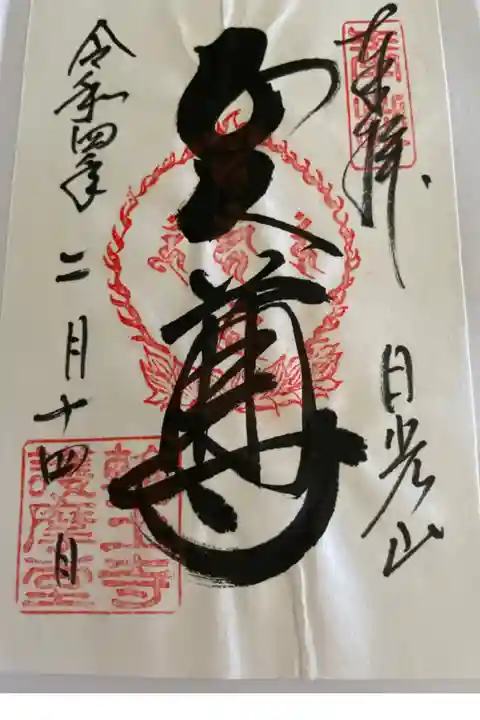 奉拝
日光山
五大尊
令和四年二月十四日
輪王寺
護摩堂